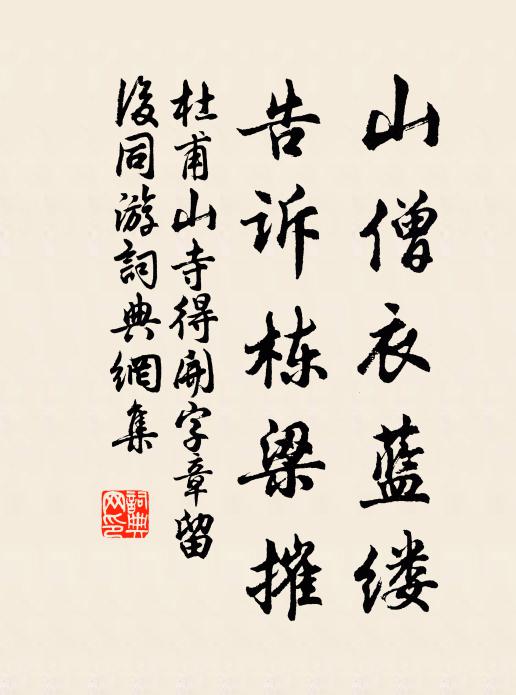 山僧衣蓝缕
告诉栋梁摧
杜甫山寺得開字章留
後同游詞典網集
詞典
网印